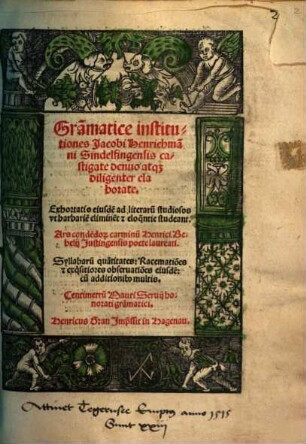 Grãmatice institu-
tiones Jacobi Henrichmã
ni Sindelfingensis ca-
stigate denuo atqꝫ
diligenter ela
borate.
Exhortatio eiusdẽ ad literarũ studiosos
vt barbariẽ eliminẽt ⁊ eloq̃ntie studeant.
Ars condẽdorꝫ carminũ Henrici Be-
belij Justingensis poete laureati.
Syllabarũ quãtitates: Racematiões
⁊ exq̃sitiores obseruatiões eiusdẽ:
cũ additionibꝰ multis.
Centimetrũ Mauri Seruij ho-
norati grãmatici.
Henricus Gran Imp̃ssit in Hagenau.
Attinet Tegernsee Emptus anno 1515
Sunt xxiij